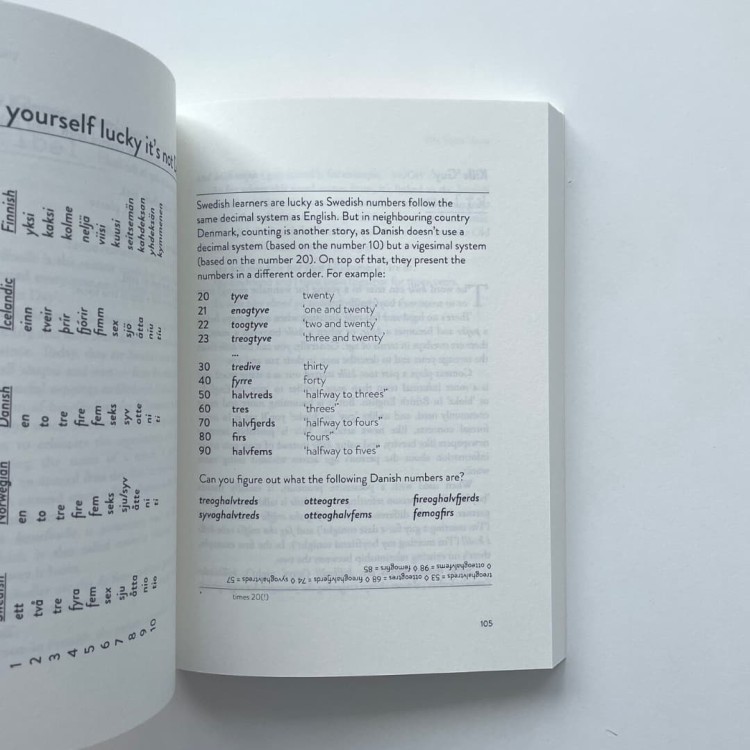 yourself lucky it's not
Norwegian Danish Icelandic Finnish
1 ett en en einn yksi
2 två to to tveir kaksi
3 tre tre tre þrír kolme
4 fyra fire fire fjórir neljä
5 fem fem fem fimm viisi
6 sex seks seks sex kuusi
7 sju sju/syv syv sjö seitsemän
8 åtta åtte otte átta kahdeksan
9 nio ni ni níu yhdeksän
10 tio ti ti tíu kymmenen
Swedish learners are lucky as Swedish numbers follow the
same decimal system as English. But in neighbouring country
Denmark, counting is another story, as Danish doesn't use a
decimal system (based on the number 10) but a vigesimal system
(based on the number 20). On top of that, they present the
numbers in a different order. For example:
20 tyve twenty
21 enogtyve 'one and twenty'
22 toogtyve 'two and twenty'
23 treogtyve 'three and twenty'
...
30 tredive thirty
40 fyrre forty
50 halvtreds 'halfway to threes*'
60 tres 'threes*'
70 halvfjerds 'halfway to fours*'
80 firs 'fours*'
90 halvfems 'halfway to fives*'
Can you figure out what the following Danish numbers are?
treoghalvtreds otteogtres fireoghalvfjerds
syvoghalvtreds otteoghalvfems femogfirs
treoghalvtreds = 53 ◊ otteogtres = 68 ◊ fireoghalvfjerds = 74 ◊ syvoghalvtreds = 57
◊ otteoghalvfems = 98 ◊ femogfirs = 85
* times 20(!)
105